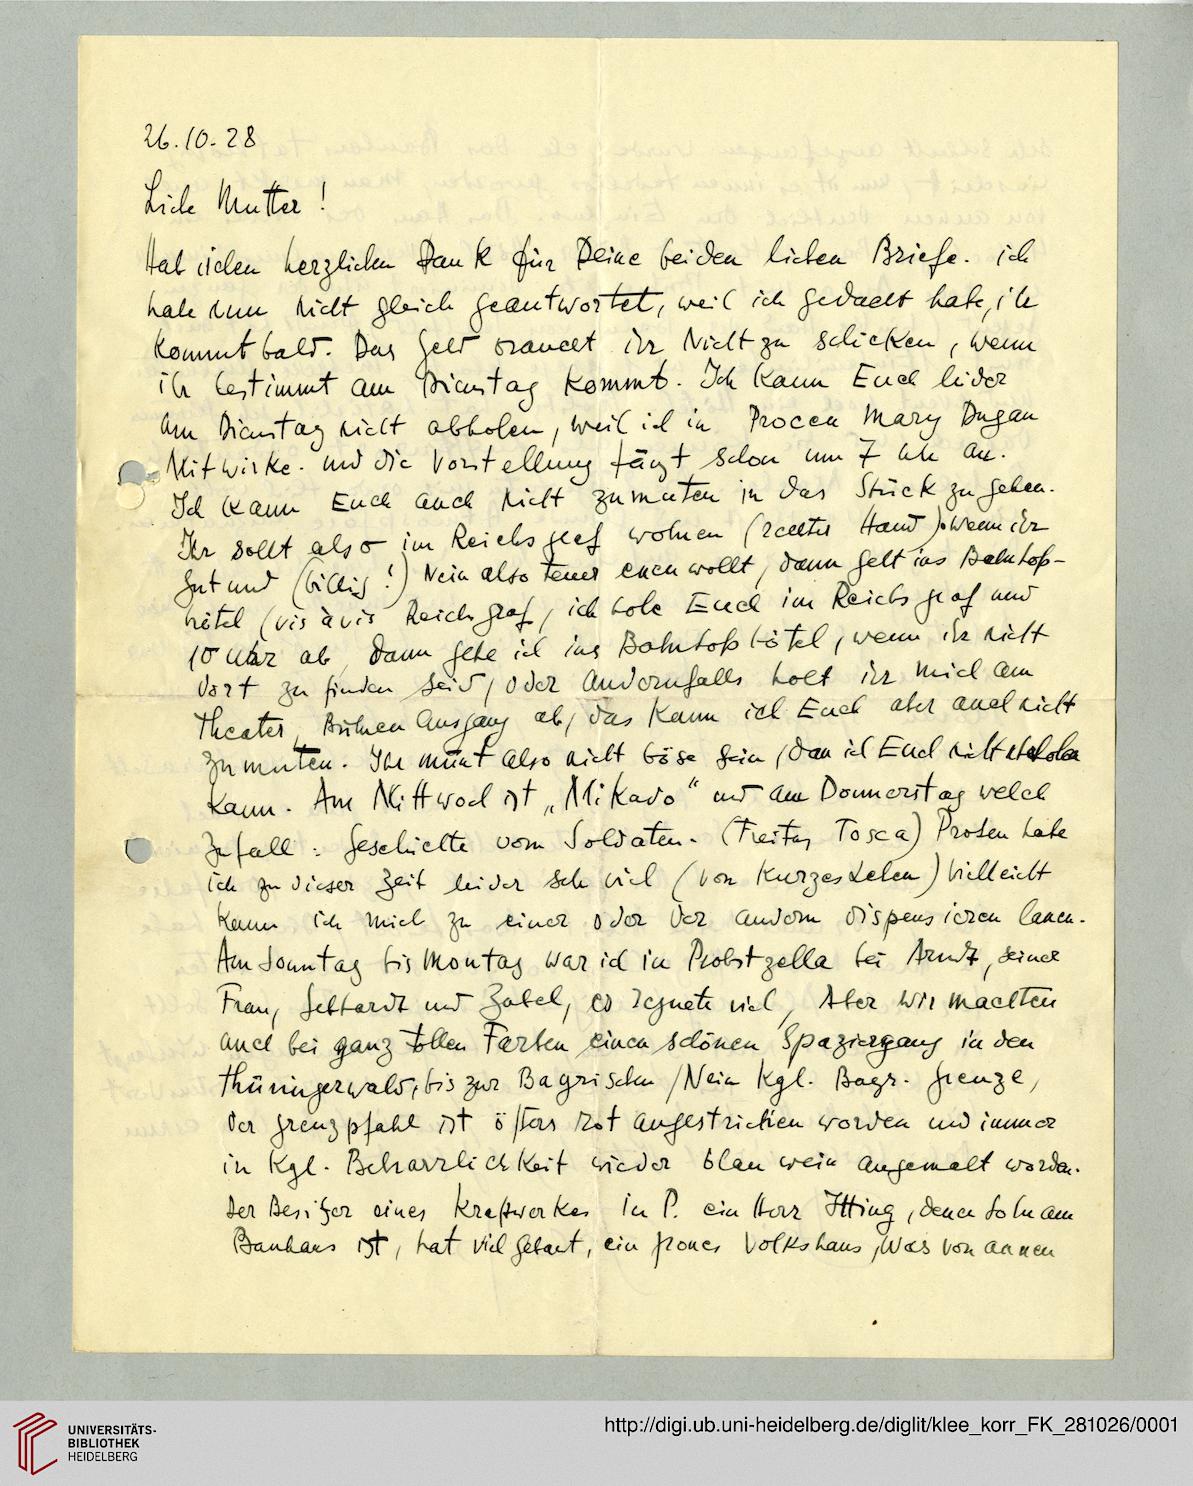 26.10.28
Liebe Mutter!
Hab vielen herzlichen Dank für Deine beiden lieben Briefe. ich
habe nun nicht gleich geantwortet, weil ich gedacht habe, ihr
kommt bald. Das Geld braucht ihr nicht zu schicken, wenn
ihr bestimmt am Dienstag kommt. Ich kann Euch leider
am Dienstag nicht abholen, weil ich in Procen Mary Dugan
Mitwirke. und die Vorstellung fängt schon um 7 Uhr an.
Ich kann Euch auch nicht zumuten in das Stück zu gehen.
Ihr sollt also im Reichsgraf wohnen (rechter Hand). wenn ihr
gut und (billig!) Nein also teuer essen wollt, dann geht ins Bahnhofs-
hôtel (vis à vis Reichsgraf, ich hole Euch im Reichsgraf um
10 Uhr ab, dann gehe ich ins Bahnhofshôtel, wenn ihr nicht
dort zu finden seid, oder andernfalls holt ihr mich am
Theater, Bühnenausgang ab, das kann ich Euch aber auch nicht
zumuten. Ihr müsst also nicht böse sein, dass ich Euch nicht abholen
kann. Am Mittwoch ist „Mikado" und am Donnerstag welch
Zufall: Geschichte vom Soldaten. (Freitag Tosca) Proben habe
ich zu dieser Zeit leider sehr viel (von kurzes Leben) vielleicht
kann ich mich zu einer oder der andern dispensieren lassen.
Am Sonntag bis Montag war ich in Probstzella bei Arndt, seiner
Frau, Gebhardt und Zabel, es regnete viel, Aber wir machten
auch bei ganz tollen Farben einen schönen Spaziergang in den
Thüringerwald, bis zur Bayrischen /Nein Kgl. Bayr. Grenze,
der Grenzpfahl ist öfters rot angestrichen worden und immer
in Kgl. Beharrlichkeit wieder blau weiss angemalt worden.
Der Besitzer eines Kraftwerkes in P. ein Herr Itting, dessen Sohn am
Bauhaus ist, hat viel gebaut, ein grosses Volkshaus, was von aussen
UNIVERSITÄTS-
BIBLIOTHEK
HEIDELBERG
http://digi.ub.uni-heidelberg.de/diglit/klee_korr_FK_281026/0001